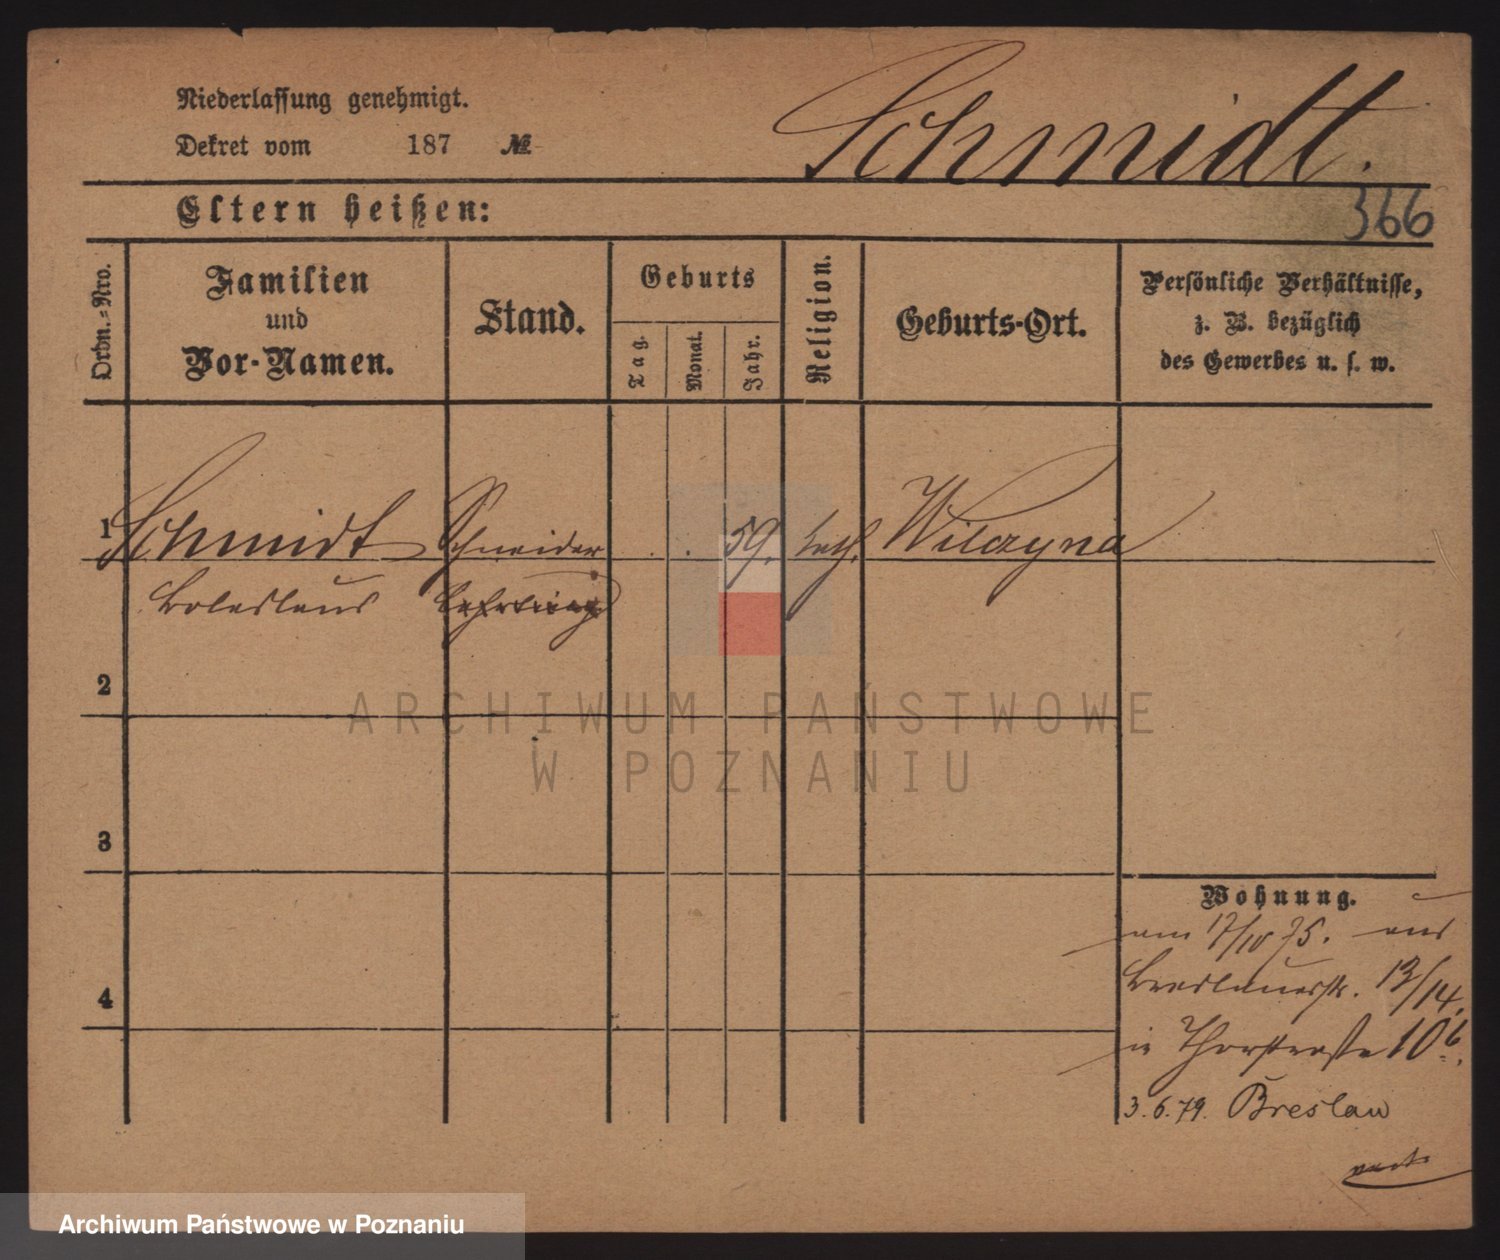 Niederlassung genehmigt.
Dekret vom 187 №
Schmidt.
366
Eltern heißen:
Ordn.-Nro.
Familien
und
Vor-Namen.
Stand.
Geburts
Tag.
Monat.
Jahr.
Religion.
Geburts-Ort.
Persönliche Verhältnisse,
z. B. bezüglich
des Gewerbes u. s. w.
1 Schmidt Schneider . . 59. kath. Wilczyna
Boleslaus Lehrling
2
3
4
Wohnung.
am 17/10 75. aus
Breslauerstr. 13/14.
in Thorstraße 10b.
3.6.79. Breslau
ARCHIWUM PAŃSTWOWE
W POZNANIU
Archiwum Państwowe w Poznaniu